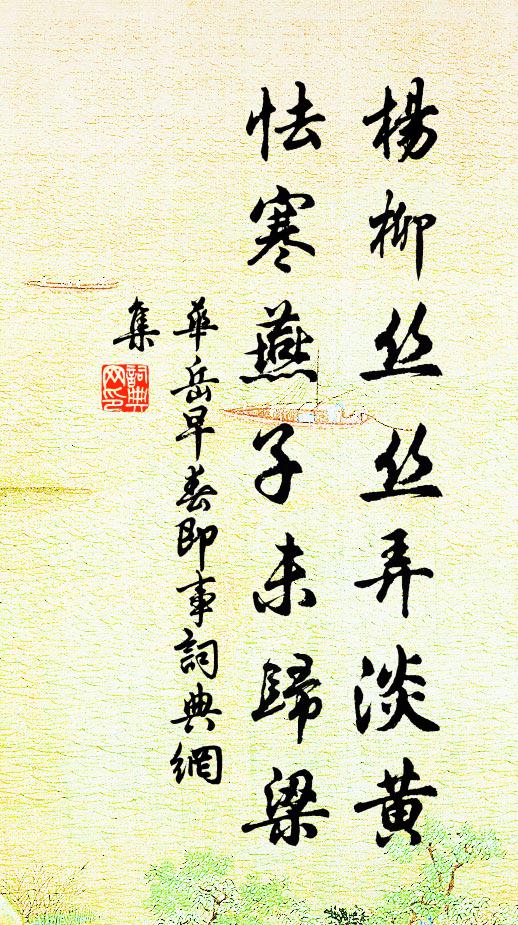 楊柳丝丝弄淡黄
怯寒燕子未歸梁
華岳早春即事詞典網
集
詞典
网印